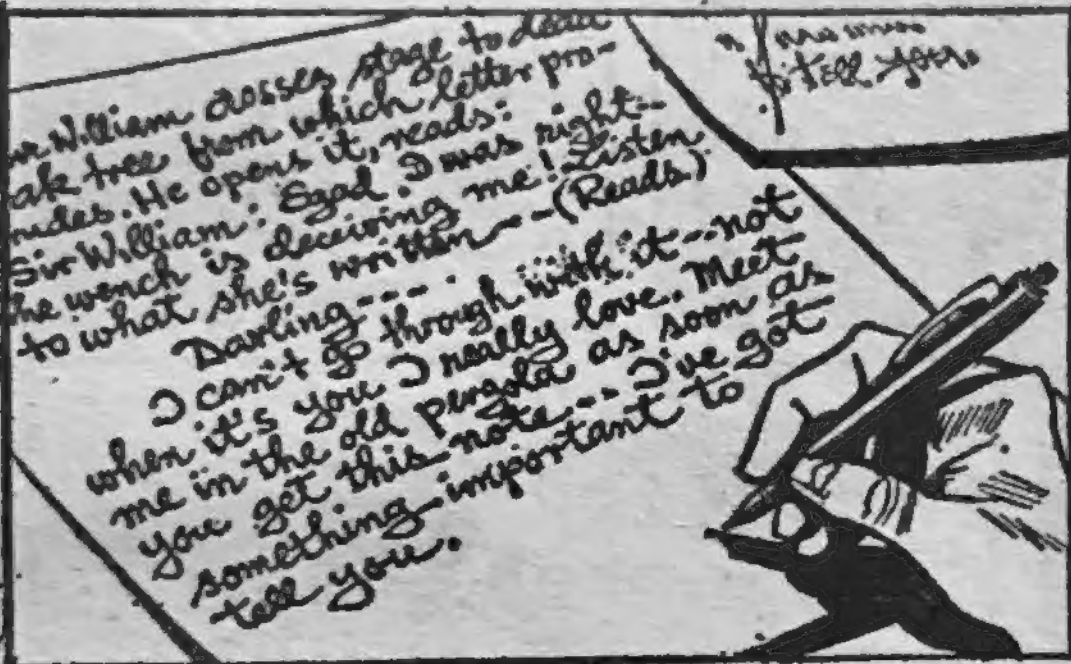 Sir William crosses stage to dead
oak tree from which letter pro-
trudes. He opens it, reads:
Sir William: Egad. I was right--
the wench is deceiving me! Listen
to what she's written--- (Reads)
Darling----
I can't go through with it--not
when it's you I really love. Meet
me in the old pergola as soon as
you get this note--- I've got
something important to
tell you.
to tell you.